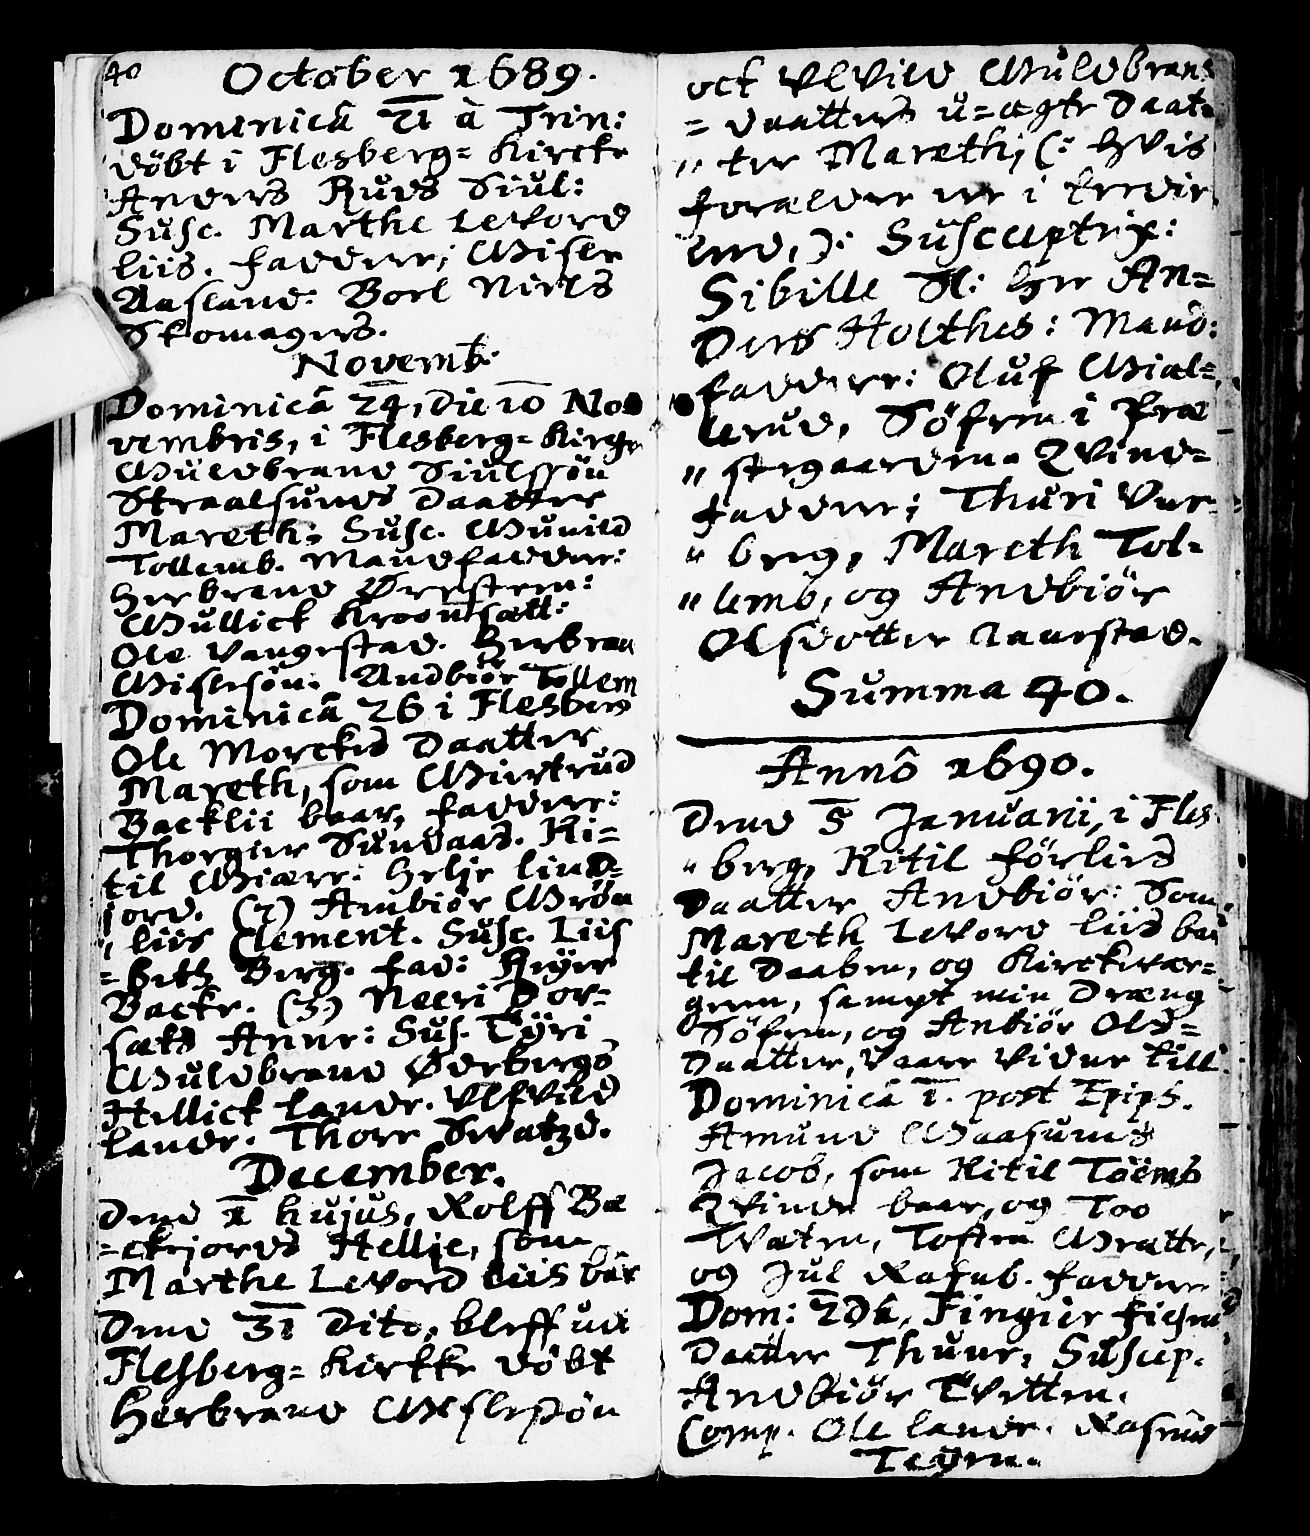 40 October 1689.
Dominicâ 21 à Trin:
döbt i Flesberg= Kircke
Anders Ruds Siul:
Susc. Marthe Levord
liis. fadder; Gisle
Aasland: Boel Niels
Skomagers.
Novemb:
Dominicâ 24, die 10 No
vembris, i Flesberg= Kirge
Guldbrand Siulssön
Straalsunds Daatter
Mareth; Susc. Gunild
Tollemb. Mandfadder:
Herbrand Ørresteen:
Gullick Kroomsæt:
Ole Vangestad. Herbran
Gislesön. Andbiör Tollem
Dominicâ 26 i Flesberg
Ole Morckes Daatter
Mareth, som Giertrud
Backlii baar, fadder:
Thorgier Sundaas. Ki=
til Giære: Helje lind=
jord. (2) Ambiör Grön
liis Clement. Susc. Liis
=beth Berg. fad: Reyer
Backe. (3) Neeri Dor=
sæts Anne: Sus. Tyri
Guldbrand Øverbergs
Hellick lande. Ulfvild
lande. Thore Svatzs.
December.
Dend 1 hujus, Rolff Bæ
=ckejords Hellje, som
Marthe Levord liis bar
Dend 31 Dito, bleff udi
Flesberg= Kirkke döbt
Herbrand Gislesön
oct Ulvild Guldbrans
= daatters u=ægte Daat
" ter Mareth; (: hvis
forælder er i tredie
leed, ): Susceptrix:
Sibille Sl: Her An=
Ders Holthes: Mand:
fadder: Oluf Giæl=
lerud, Söfren i Præ
" stegaarden. Qvind=
fadder; Thuri Ver
" berg, Mareth Tol=
" lemb, og Andbiör
Olsdotter Aaerstad.
Summa 40.
Annô 1690.
Dend 5 Januarii, i Fles
" berg, Kitil förlies
Daatter Andbiör: Som
Mareth Levord liis baar
til Daaben, og Kirckevær=
geren, sampt min Dræng
Söfren, og Anbiör Ols=
Daatter, vaare vidne till.
Dominicâ 1. post Epips.
Amund Gaasunds
Jacob, som Kitil Töemb
Qvinde baar, og Too
Waten, Tosten Grætte,
og Jul Rafnb. fadder
Dom: 2da, Fingier
Daatter Thuur, Suscep.
Andbiör Tvetten.
Comp. Ole lande. Rasmus
Teyen.